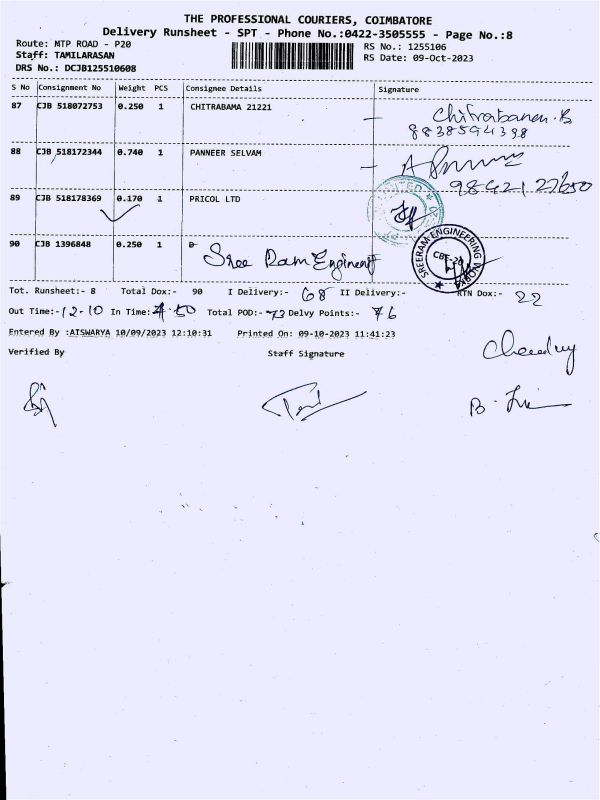 THE PROFESSIONAL COURIERS, COIMBATORE
Delivery Runsheet - SPT - Phone No.:0422-3505555 - Page No.:8
Route: MTP ROAD - P20
Staff: TAMILARASAN
DRS No.: DCJB125510608
RS No.: 1255106
RS Date: 09-Oct-2023
S No Consignment No Weight PCS Consignee Details Signature
87 CJB 518072753 0.250 1 CHITRABAMA 21221
Chitrabanan.B
9838594398
88 CJB 518172344 0.740 1 PANNEER SELVAM
98421 27650
89 CJB 518178369 0.170 1 PRICOL LTD
90 CJB 1396848 0.250 1 D
Sree Ram Enginent
SREERAM ENGINEERING
Tot. Runsheet:- 8 Total Dox:- 90 I Delivery:- 68 II Delivery:- RTN Dox:- 22
Out Time:- 12-10 In Time: 4.50 Total POD:- 72 Delvy Points:- 76
Entered By :AISWARYA 10/09/2023 12:10:31 Printed On: 09-10-2023 11:41:23
Verified By Staff Signature